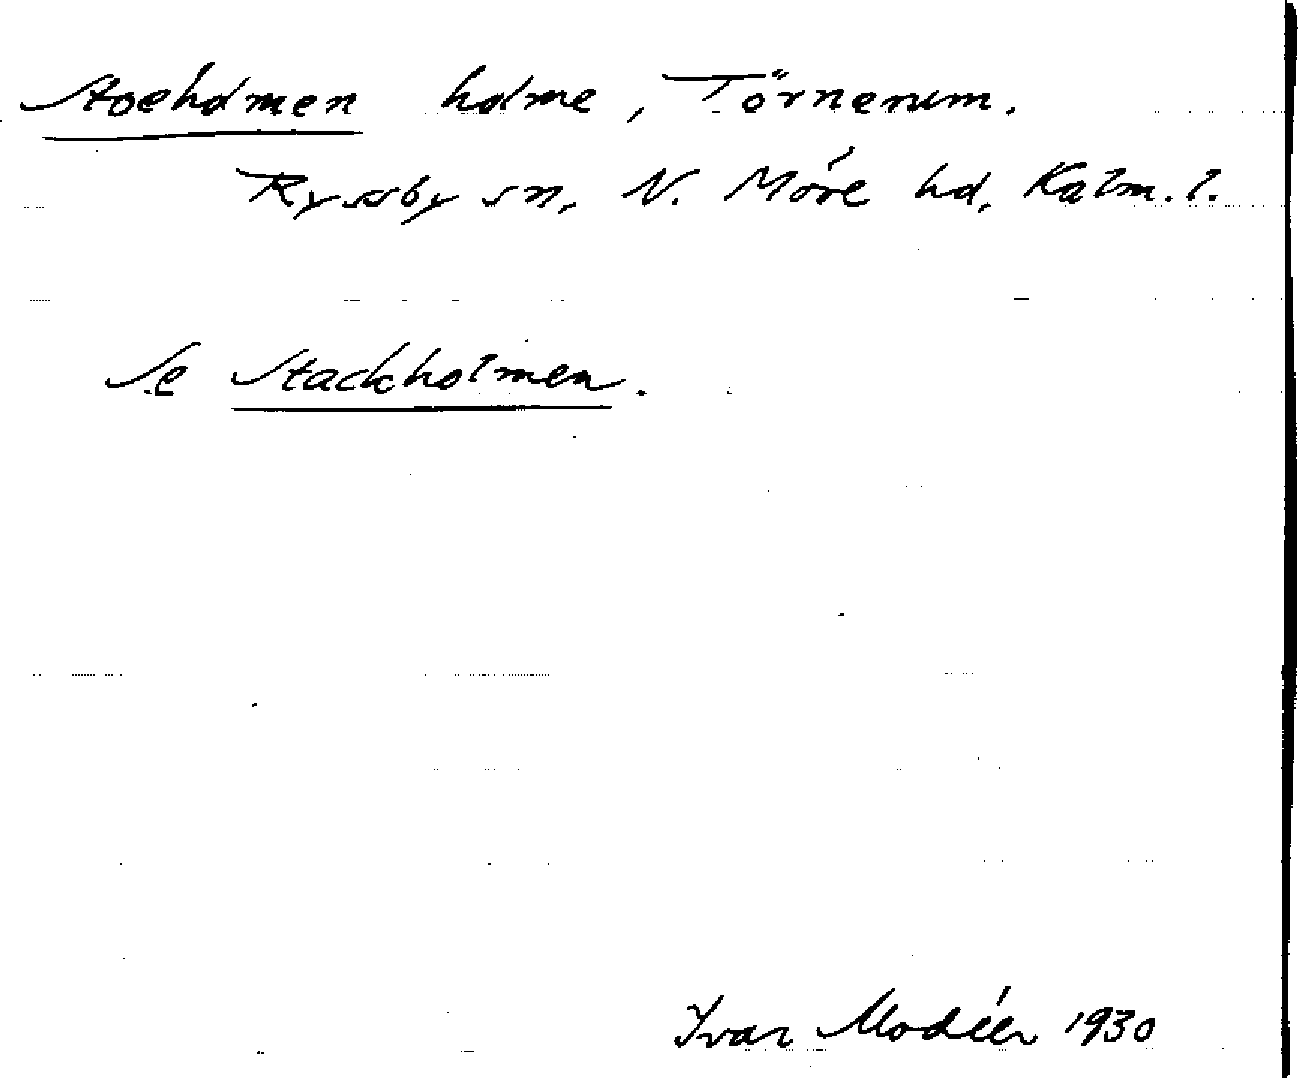 Stoeholmen holme, Törnerum.
Ryssby sn, N. Möre hd, Kalm. l.
Se Stackholmen.
Ivar Modéer 1930